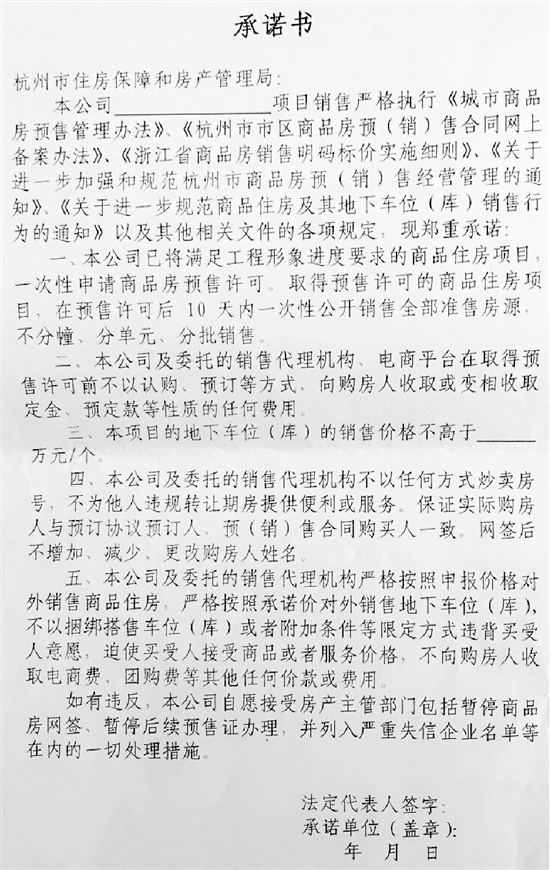 承诺书
杭州市住房保障和房产管理局：
本公司______________项目销售严格执行《城市商品
房预售管理办法》、《杭州市市区商品房预（销）售合同网上
备案办法》、《浙江省商品房销售明码标价实施细则》、《关于
进一步加强和规范杭州市商品房预（销）售经营管理的通
知》、《关于进一步规范商品住房及其地下车位（库）销售行
为的通知》以及其他相关文件的各项规定，现郑重承诺：
一、本公司已将满足工程形象进度要求的商品住房项目，
一次性申请商品房预售许可。取得预售许可的商品住房项
目，在预售许可后 10 天内一次性公开销售全部准售房源，
不分幢、分单元、分批销售。
二、本公司及委托的销售代理机构、电商平台在取得预
售许可前不以认购、预订等方式，向购房人收取或变相收取
定金、预定款等性质的任何费用。
三、本项目的地下车位（库）的销售价格不高于______
万元/个。
四、本公司及委托的销售代理机构不以任何方式炒卖房
号，不为他人违规转让期房提供便利或服务。保证实际购房
人与预订协议预订人、预（销）售合同购买人一致。网签后
不增加、减少、更改购房人姓名。
五、本公司及委托的销售代理机构严格按照申报价格对
外销售商品住房，严格按照承诺价对外销售地下车位（库），
不以捆绑搭售车位（库）或者附加条件等限定方式违背买受
人意愿，迫使买受人接受商品或者服务价格，不向购房人收
取电商费、团购费等其他任何价款或费用。
如有违反，本公司自愿接受房产主管部门包括暂停商品
房网签、暂停后续预售证办理，并列入严重失信企业名单等
在内的一切处理措施。
法定代表人签字：
承诺单位（盖章）：
年 月 日